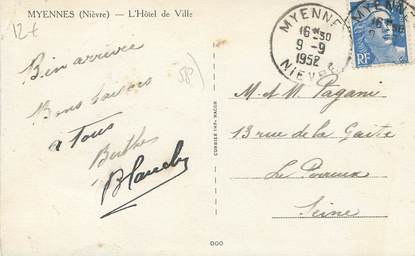 MYENNES (Nièvre) — L'Hôtel de Ville
12€
Bien arrivée
Bons baisers
à Tous
Blanche
58)
COMBIER IMP. MACON
MYENNES
16H30
9-9
1952
NIEVRE
RF
M. et M. Pagani
13 rue de la Gaité
Le
Seine